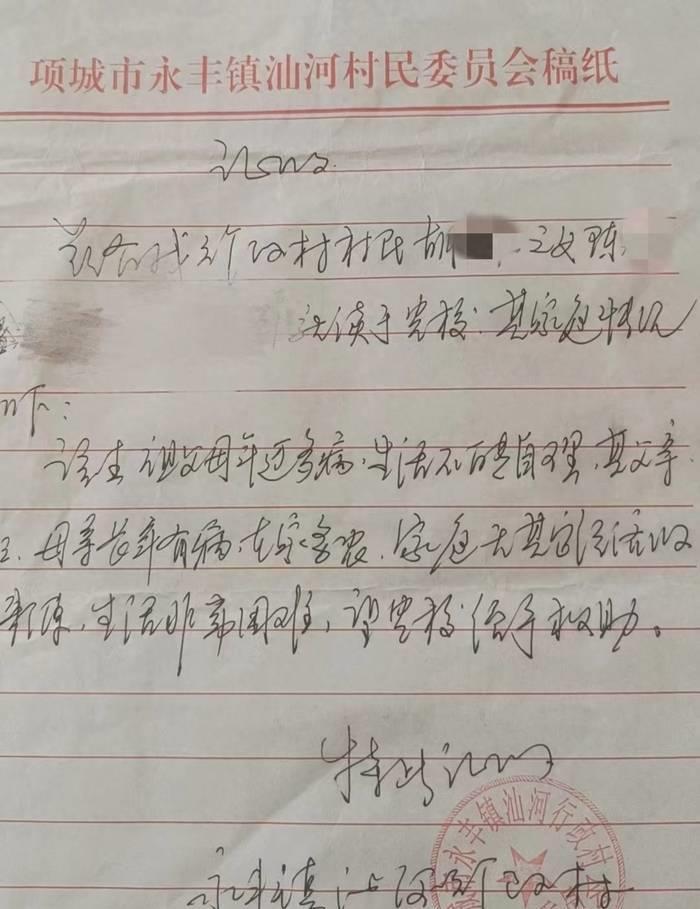 项城市永丰镇汕河村民委员会稿纸
证明
兹有我行政村村民胡 之女陈
就读于贵校.其家庭情况
如下:
该生祖父母年迈多病.生活不能自理,其父亲
母亲长年有病,在家务农.家庭无其它经济收
来源,生活非常困难,望贵校给予救助。
特此证明
永丰镇汕河行政村
永丰镇汕河行政村